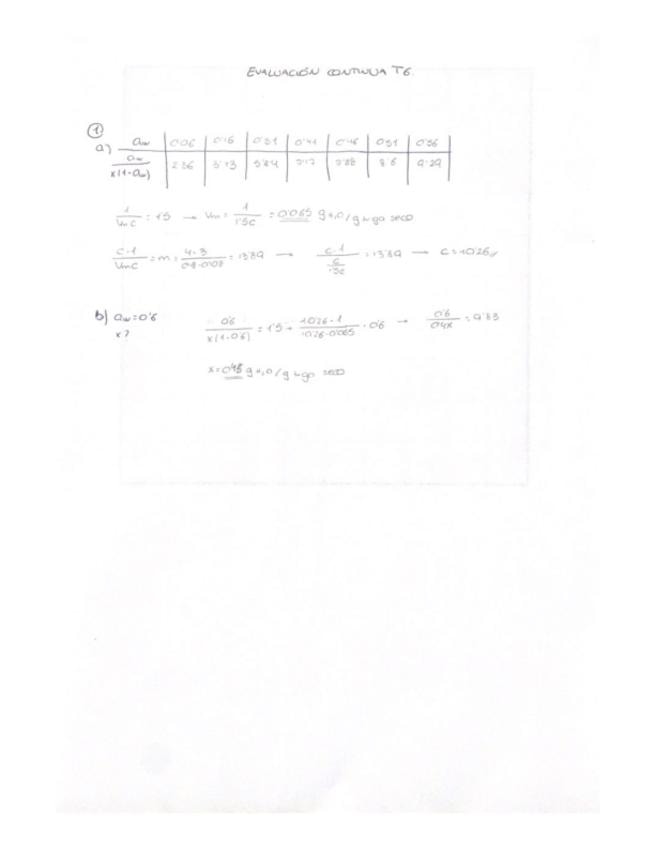 EVALUACIÓN CONTINUA T6.
①
a) aw 0'06 0'16 0'31 0'41 0'46 0'51 0'56
aw / x(1-aw) 2'36 3'13 5'84 8'6 9'29
1 / VmC = 1'5 → Vm = 1 / 1'5C = 0'065 g H₂O/g trigo seco
C-1 / VmC = m = 4-3 / = 13'89 → C-1 / C/1'5C = 13'89 → C = 10'26
b) aw = 0'6
x?
0'6 / x(1-0'6) = 1'5 + 10'26-1 / 10'26·0'065 · 0'6 → 0'6 / 0'4x = 9'83
x = g H₂O/g trigo seco